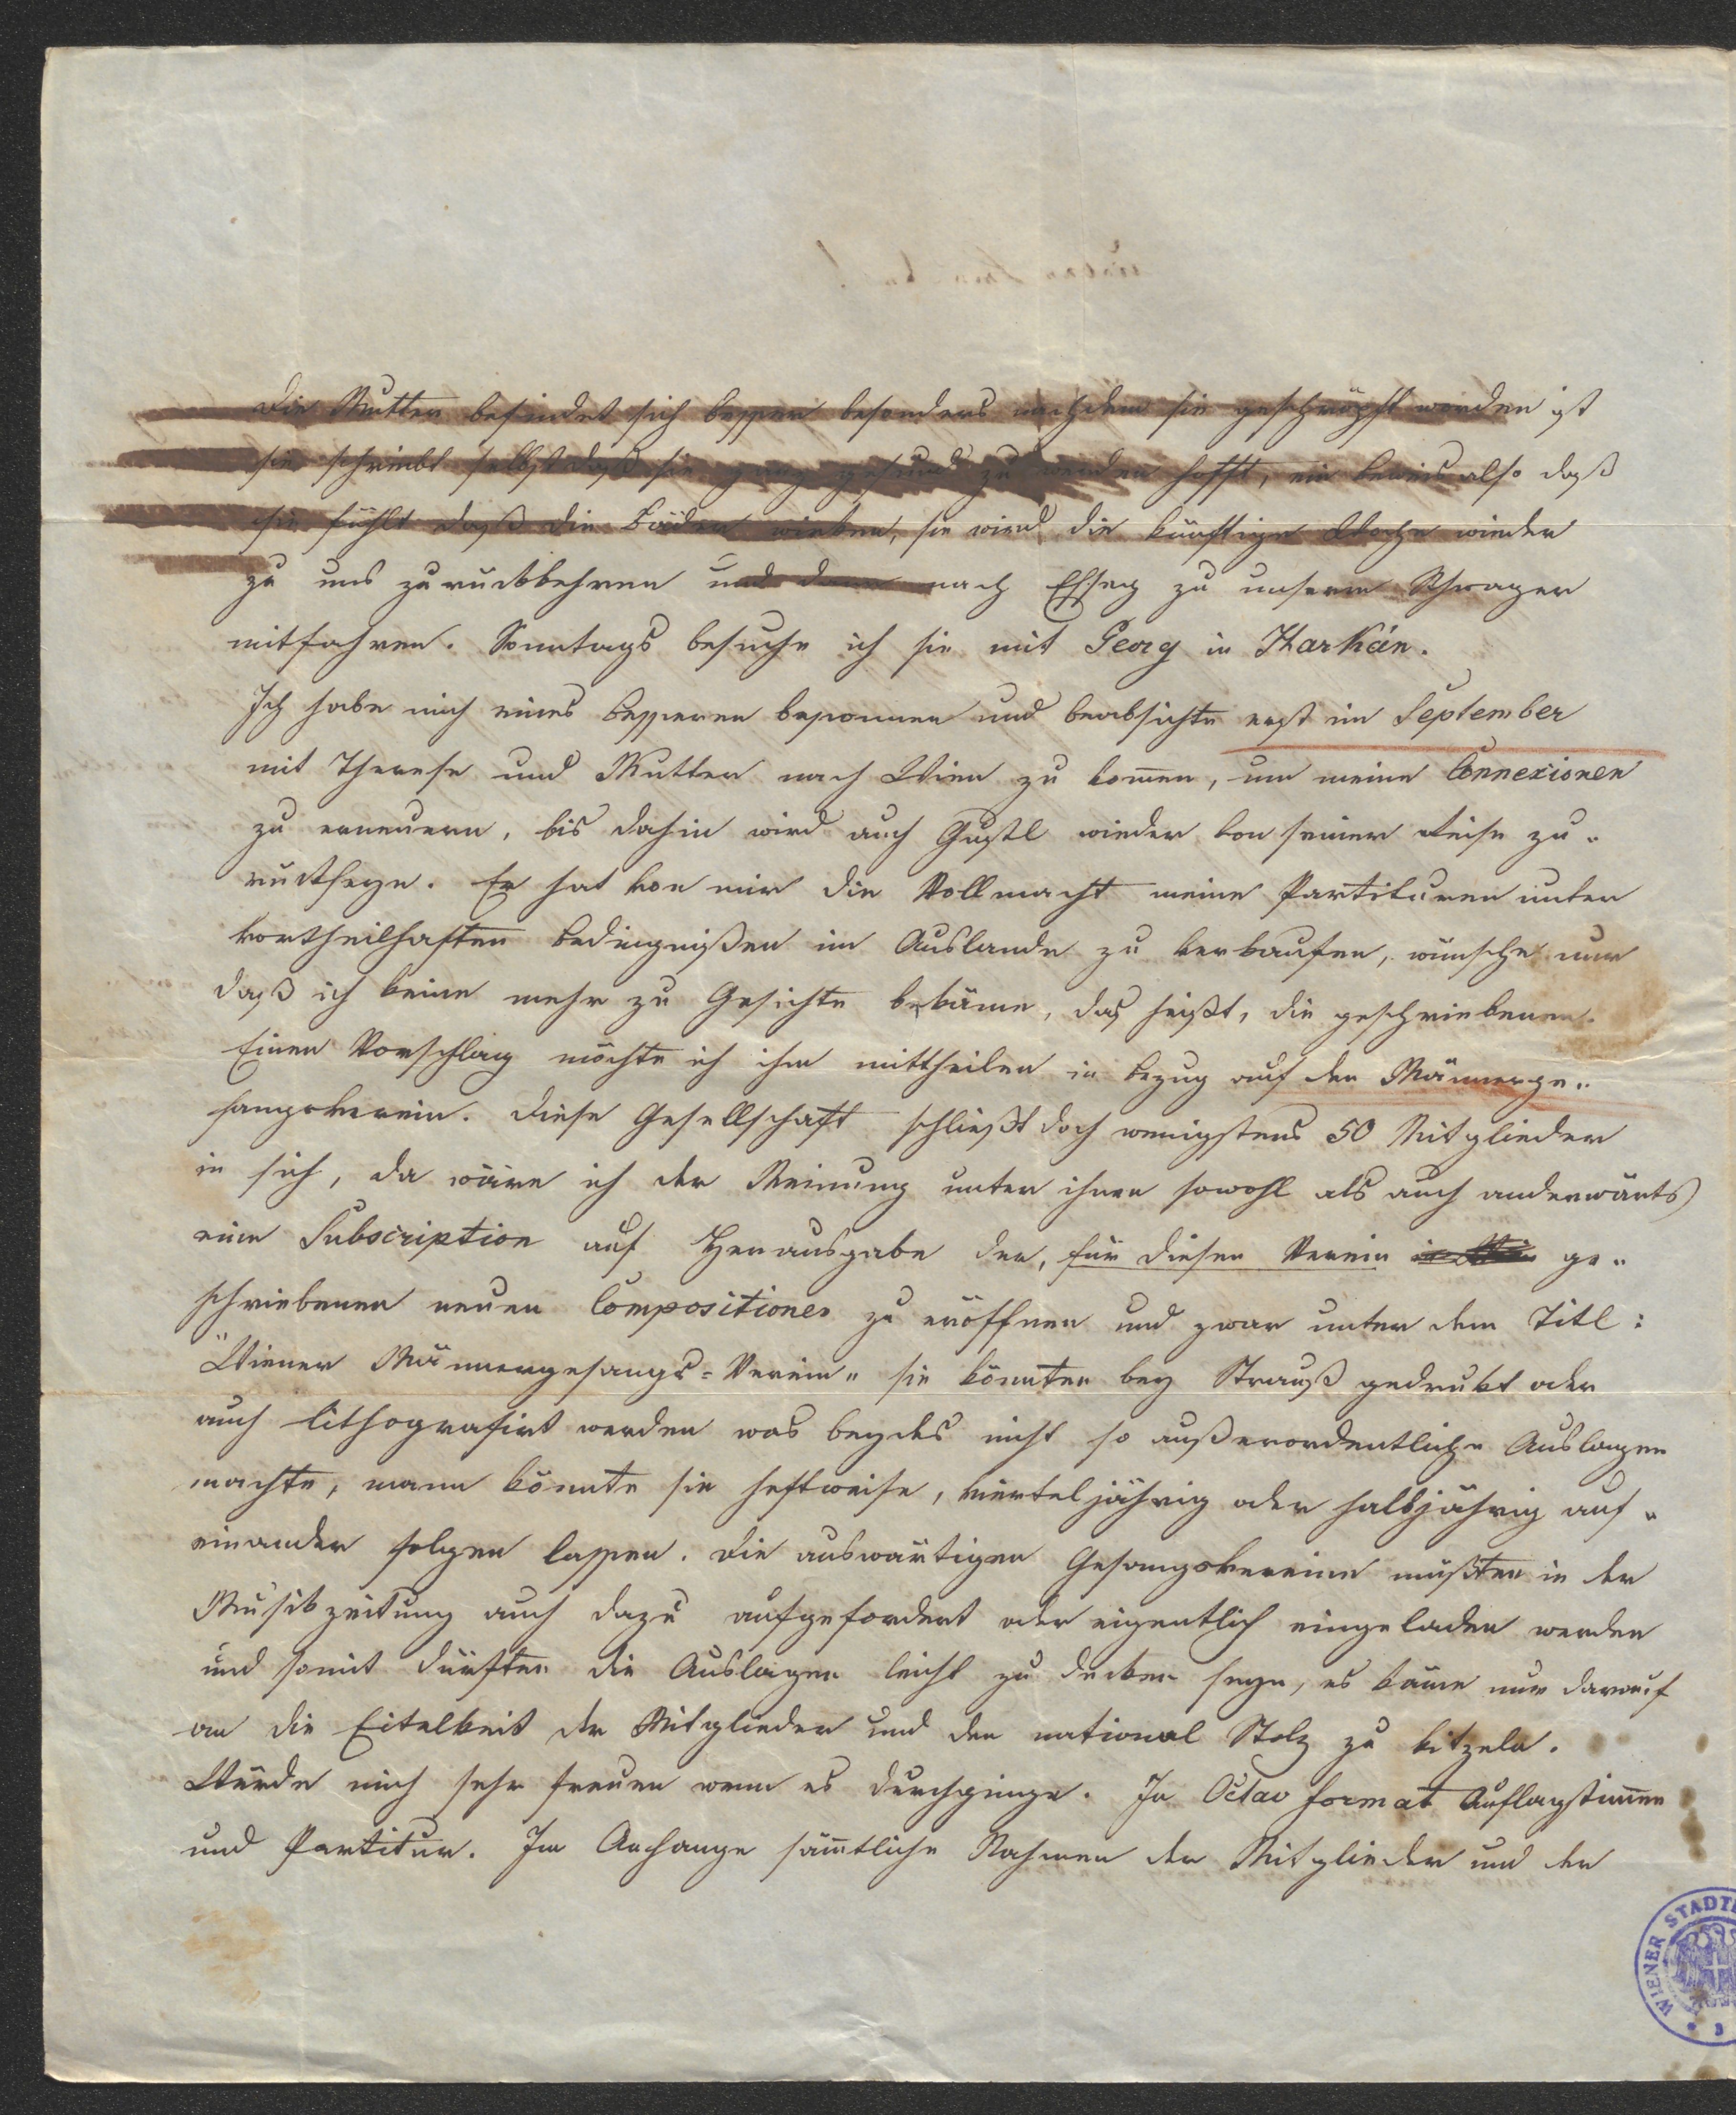 Die Mutter befindet sich besser besonders nachdem sie geschröpft worden ist
sie schreibt selbst daß sie ganz gesund zu werden hofft, ein beweis also daß
sie fühlt daß die Bäder wirken, sie wird die künftige Woche wieder
zu uns zurückkehren und dann nach Essegg zu unserm Schwager
mitfahren. Sonntags besuche ich sie mit Georg in Harkán.
Ich habe mich eines besseren besonnen und beabsichte erst im September
mit Therese und Mutter nach Wien zu komen, um meine Connexionen
zu erneuern, bis dahin wird auch Gustl wieder von seiner Reise zu„
ruckseyn. Er hat von mir die Vollmacht meine Partituren unter
vortheilhaften bedingnißen im Auslande zu verkaufen, wünsche nur
daß ich keine mehr zu Gesichte bekäme, das heißt, die geschriebenen.
Einen Vorschlag möchte ich ihm mittheilen in bezug auf den Männerge„
sangsverein. Diese Gesellschaft schließt doch wenigstens 50 Mitglieder
in sich, da wäre ich der Meinung unter ihnen sowohl als auch anderwärts
eine Subscription auf Herausgabe der, für diesen Verein ge„
schriebenen neuen Compositionen zu eröffnen und zwar unter dem Titl:
"Wiener Männergesangs-Verein" sie könnten bey Strauß gedrukt oder
auch lithografirt werden was beydes nicht so außerordentliche Auslagen
machte, mann könnte sie heftweise, vierteljährig oder halbjährig auf„
einander folgen lassen. Die auswärtigen Gesangsvereine müßten in der
Musikzeitung auch dazu aufgefordert oder eigentlich eingeladen werden
und somit dürften die Auslagen leicht zu decken seyn, es käme nur darauf
an die Eitelkeit der Mitglieder und den national Stolz zu kitzeln.
Würde mich sehr freuen wenn es durchginge. In Octav format Auflagstimen
und Partitur. Im Anhange sämtliche Nahmen der Mitglieder und der
WIENER STADT